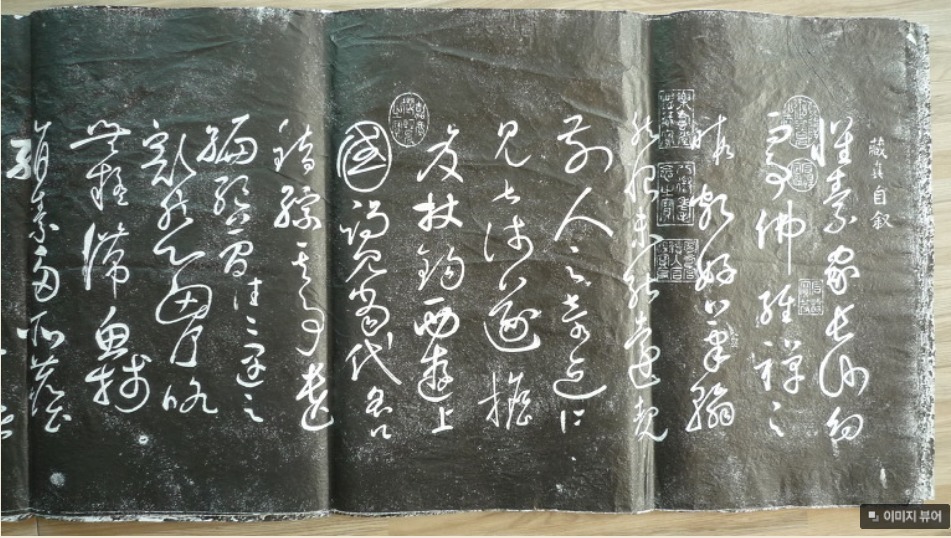 藏真自叙
懷素家長沙幼
而事佛經禪之
暇頗好筆翰
然恨未能遠覩
前人之奇迹所
見甚淺遂擔
笈杖錫西遊上
國謁見當代名公
錯綜其事遺
編絕簡往往遇之
豁然心胸略
無疑滯魚牋
絹素多所塵
이미지 뷰어